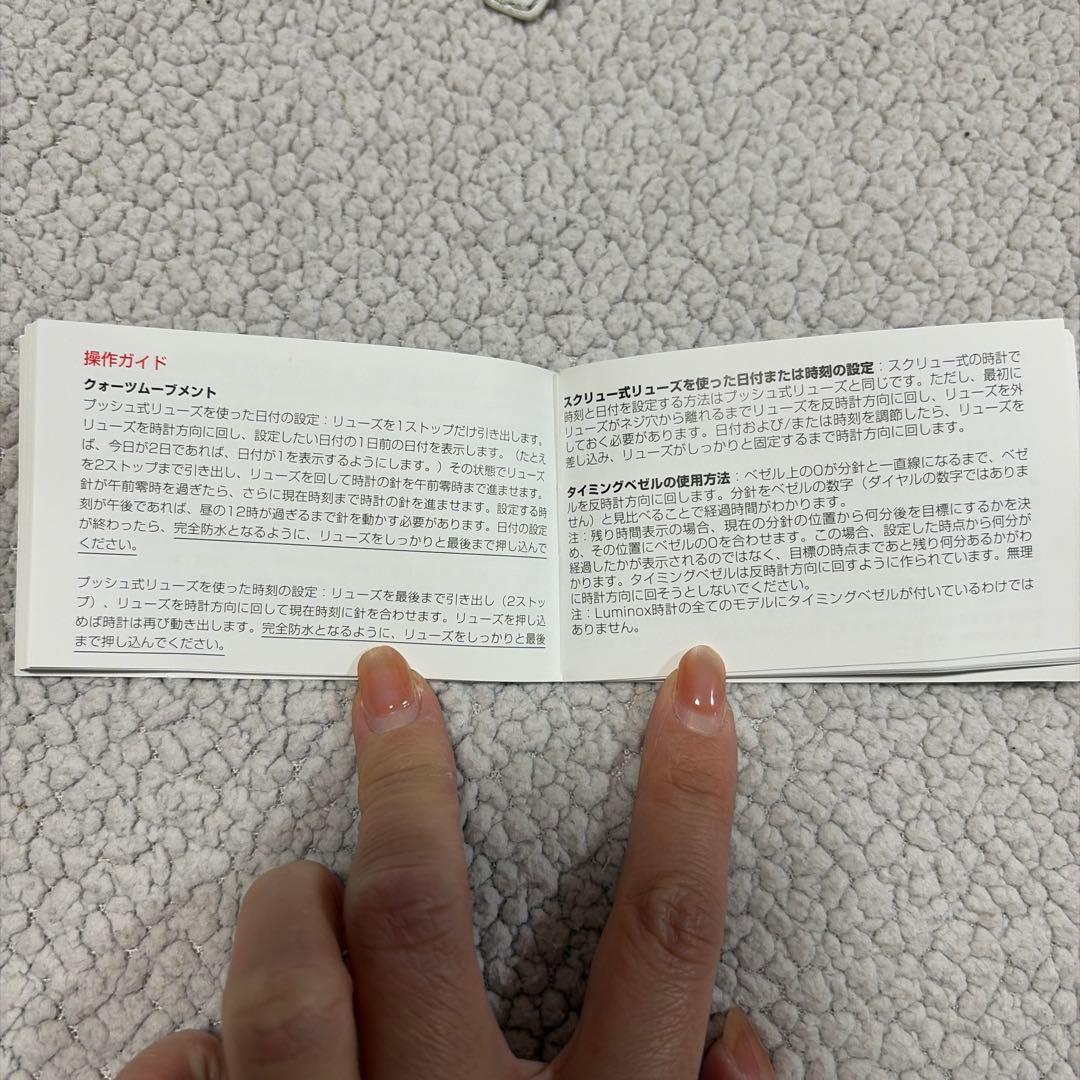 操作ガイド
クォーツムーブメント
プッシュ式リューズを使った日付の設定：リューズを1ストップだけ引き出します。
リューズを時計方向に回し、設定したい日付の1日前の日付を表示します。（たとえ
ば、今日が2日であれば、日付が1を表示するようにします。）その状態でリューズ
を2ストップまで引き出し、リューズを回して時計の針を午前零時まで進ませます。
針が午前零時を過ぎたら、さらに現在時刻まで時計の針を進ませます。設定する時
刻が午後であれば、昼の12時が過ぎるまで針を動かす必要があります。日付の設定
が終わったら、完全防水となるように、リューズをしっかりと最後まで押し込んで
ください。
プッシュ式リューズを使った時刻の設定：リューズを最後まで引き出し（2ストッ
プ）、リューズを時計方向に回して現在時刻に針を合わせます。リューズを押し込
めば時計は再び動き出します。完全防水となるように、リューズをしっかりと最後
まで押し込んでください。
スクリュー式リューズを使った日付または時刻の設定：スクリュー式の時計で
時刻と日付を設定する方法はプッシュ式リューズと同じです。ただし、最初に
リューズがネジ穴から離れるまでリューズを反時計方向に回し、リューズを外
しておく必要があります。日付および/または時刻を調節したら、リューズを
差し込み、リューズがしっかりと固定するまで時計方向に回します。
タイミングベゼルの使用方法：ベゼル上の0が分針と一直線になるまで、ベゼ
ルを反時計方向に回します。分針をベゼルの数字（ダイヤルの数字ではありま
せん）と見比べることで経過時間がわかります。
注：残り時間表示の場合、現在の分針の位置から何分後を目標にするかを決
め、その位置にベゼルの0を合わせます。この場合、設定した時点から何分が
経過したかが表示されるのではなく、目標の時点まであと残り何分あるかがわ
かります。タイミングベゼルは反時計方向に回すように作られています。無理
に時計方向に回そうとしないでください。
注：Luminox時計の全てのモデルにタイミングベゼルが付いているわけでは
ありません。